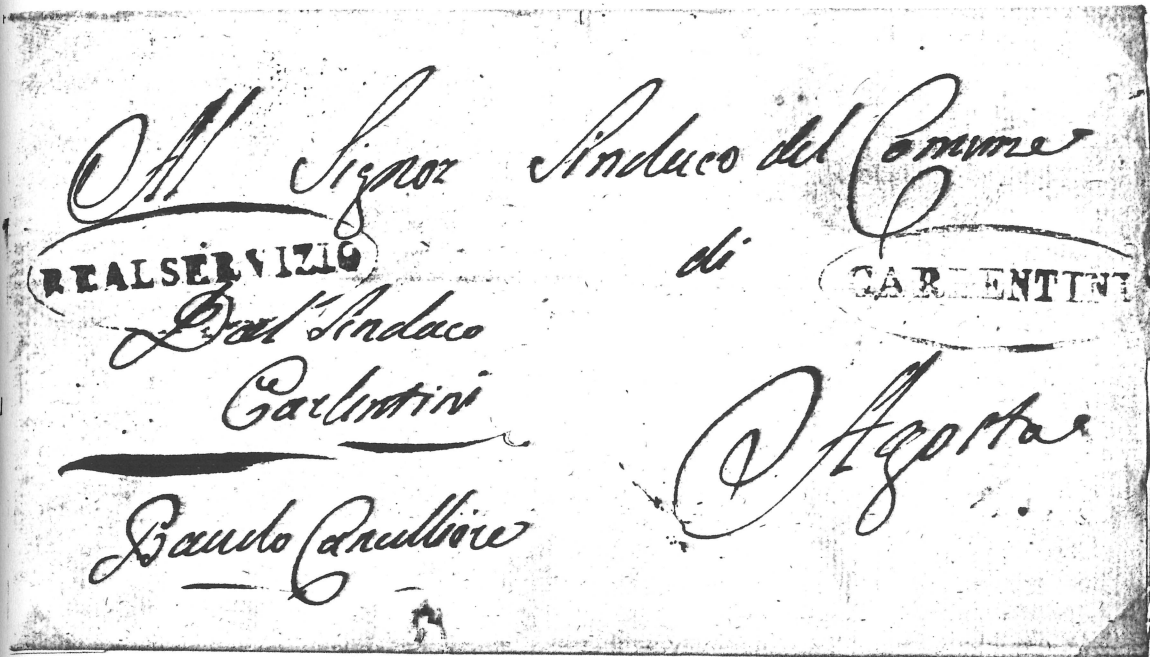 Al Signor Sindaco del Comune
di
REAL SERVIZIO
CARLENTINI
Dal Sindaco
Carlentini
Agosta
Baudo Cancelliere